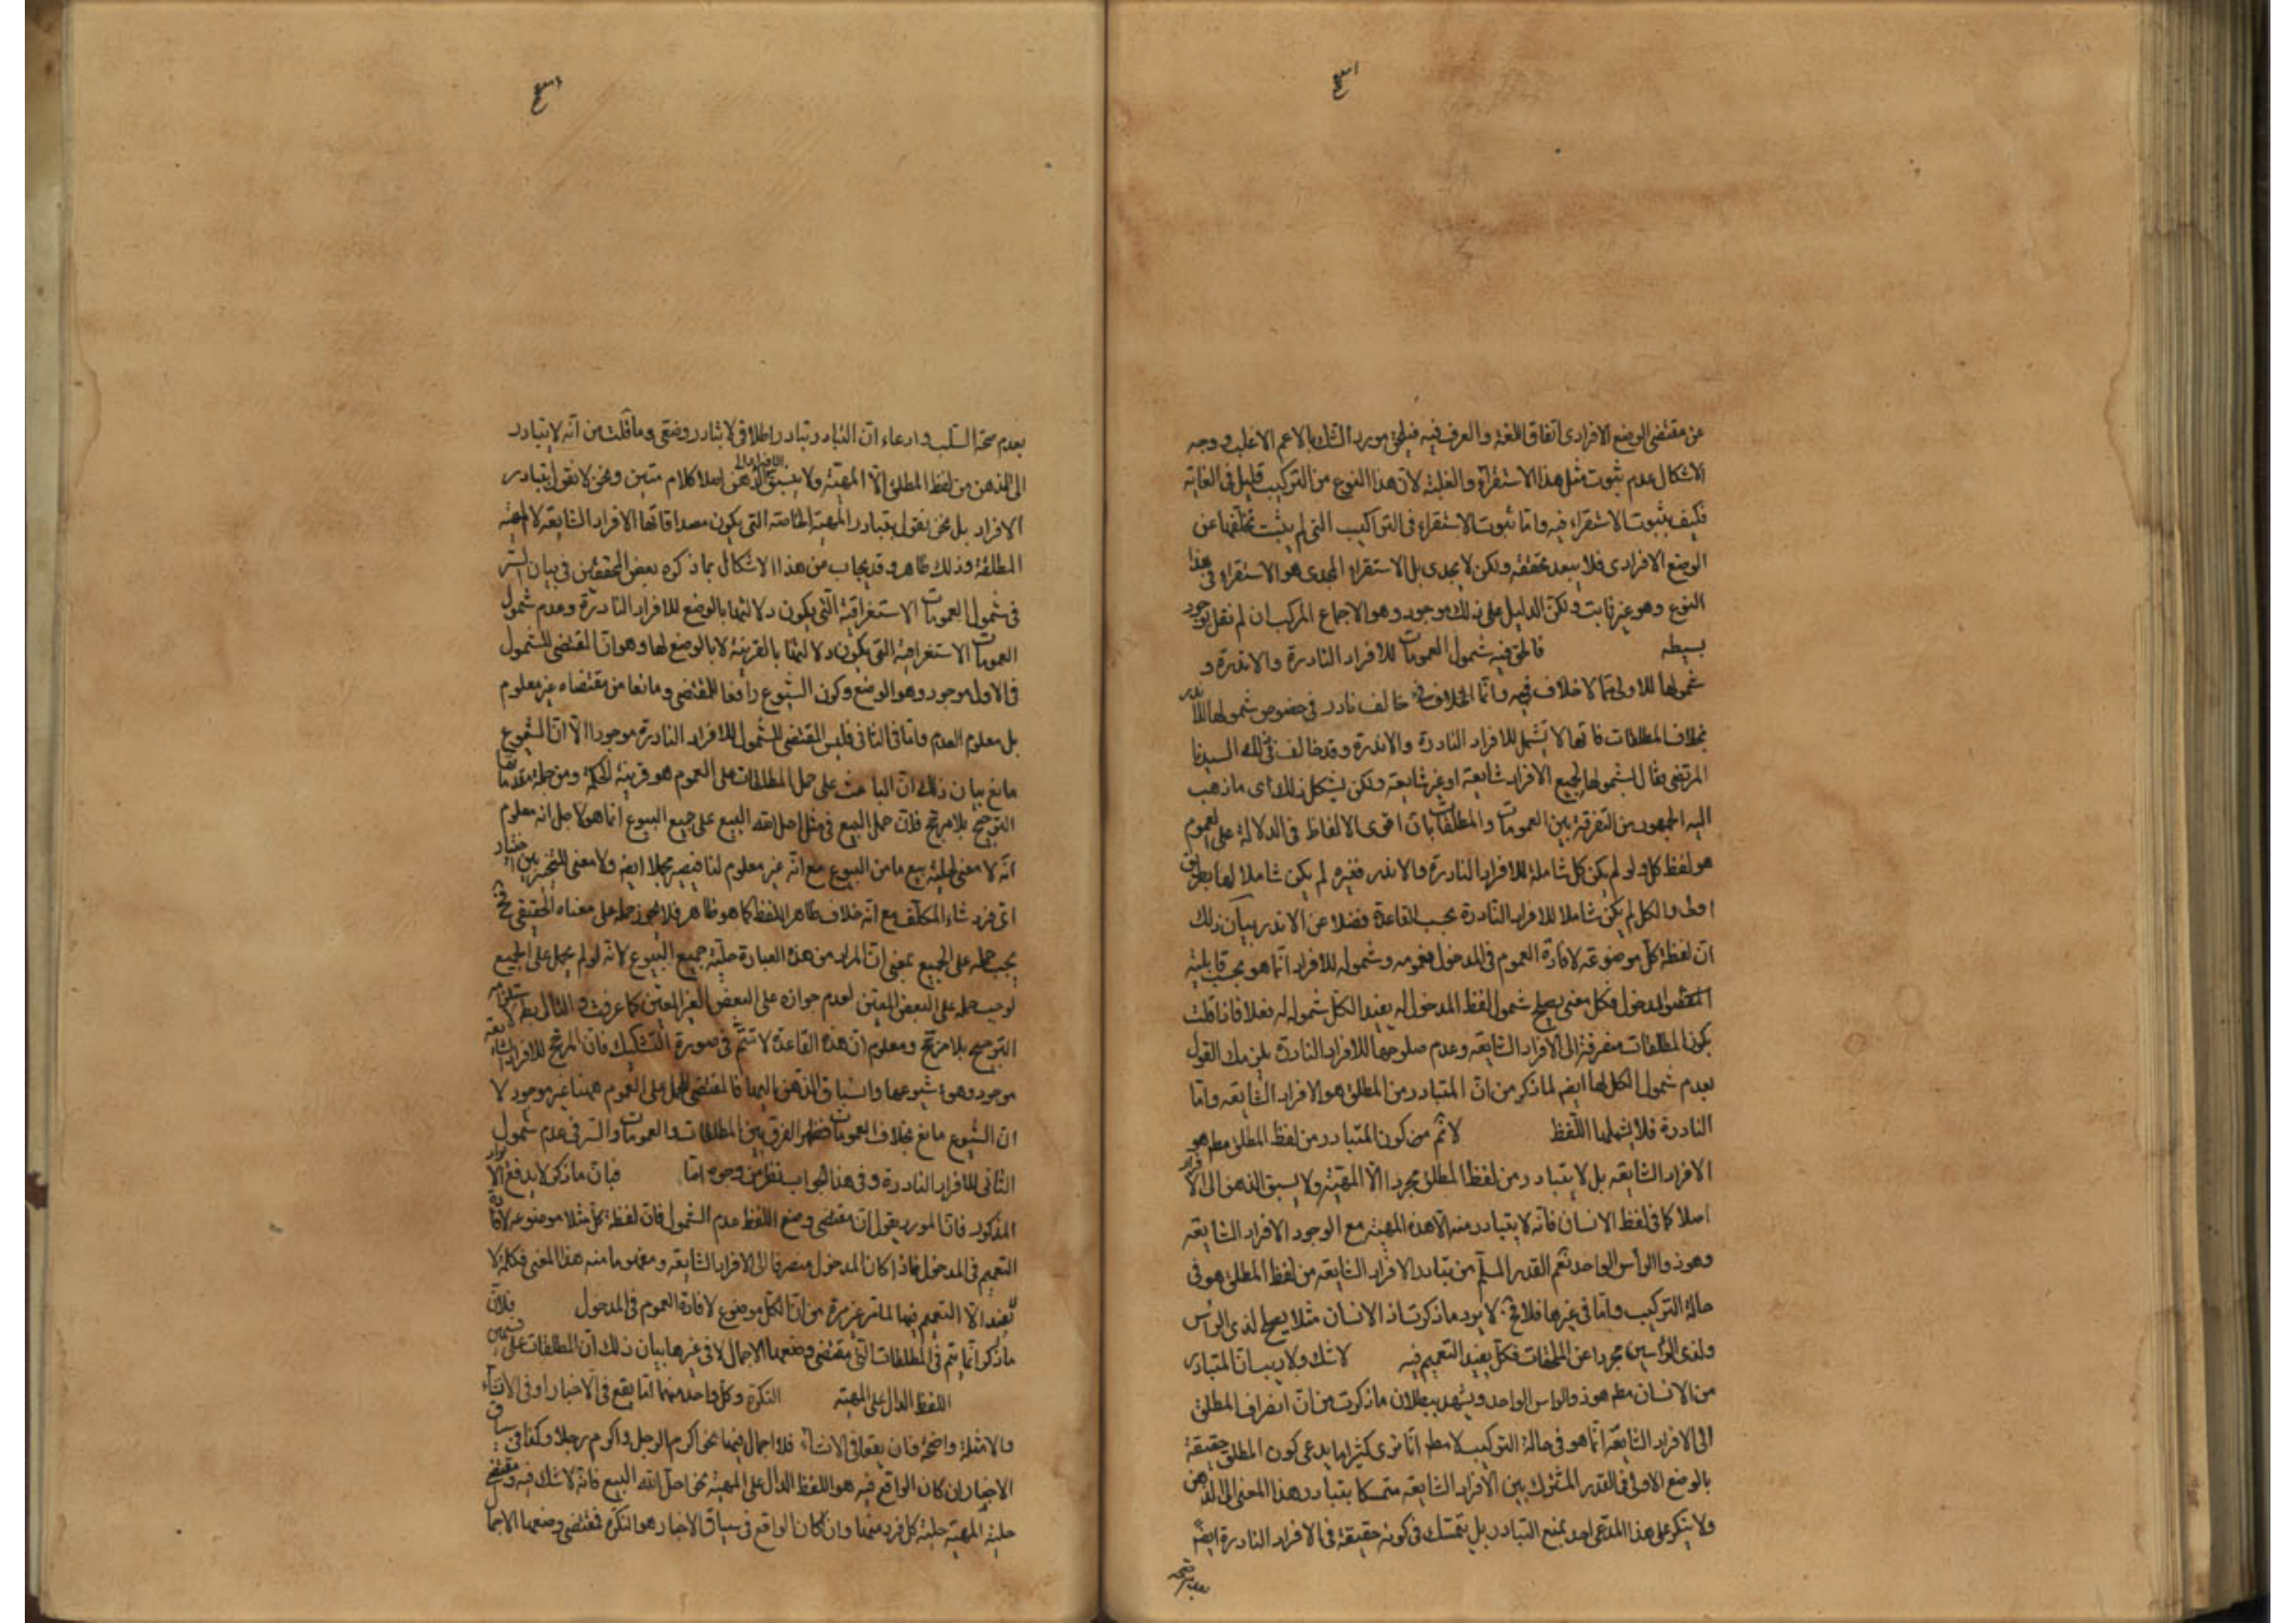 عن مقتضى الوضع الافرادى اتفاق اللغة والعرف فيه فيلحق مورد الشك بالاعم الاغلب ووجه
الاشكال عدم ثبوت مثل هذا الاستقراء والغلبة لان هذا النوع من التركيب قليل فى الغاية
فكيف بثبوت الاستقراء فيه واما ثبوت الاستقراء فى التراكيب التى لم يثبت تخلفها عن
الوضع الافرادى فلا يبعد تحققه ولكن لا يجدى بل الاستقراء المجدى هو الاستقراء فى هذا
النوع وهو غير ثابت ولكن الدليل على ذلك موجود وهو الاجماع المركب ان لم نقل بوجود
بسيطه فالحق فيه شمول العمومات للافراد النادرة والاندرة و
شمولها للاولى مما لا خلاف فيه وانما الخلاف فى خالف نادر فى خصوص شمولها للاندر
بخلاف المطلقات فانها لا تشمل للافراد النادرة والاندرة وقد خالف فى ذلك السيدنا
المرتضى فقال بشمولها لجميع الافراد شايعة او غير شايعة ولكن يشكل ذلك اى ما ذهب
اليه الجمهور من التفرقة بين العمومات والمطلقات بان اقوى الالفاظ فى الدلالة على العموم
هو لفظ كل ولو لم يكن كل شاملة للافراد النادرة والاندر فغيره لم يكن شاملا لها بطريق
اولى والكل لم يكن شاملا للافراد النادرة بحسب القاعدة فضلا عن الاندر بيان ذلك
ان لفظة كل موضوعة لافادة العموم فى المدخول فعمومه وشموله للافراد انما هو بحسب قابلية
المدخول فكل معنى يصلح شمول لفظ المدخول له يفيد الكل شموله له فعلا فاذا قلت
بكون المطلقات منصرفة الى الافراد الشايعة وعدم صلوحها للافراد النادرة يلزمك القول
بعدم شمول الكل لها ايضا لما ذكر من ان المتبادر من المطلق هو الافراد الشايعة واما
النادرة فلا يشملها اللفظ لا ثم من كون المتبادر من لفظ المطلق مط هو
الافراد الشايعة بل لا يتبادر من لفظ المطلق مجردا الا المهية ولا يسبق الذهن الى الافراد
اصلا كما فى لفظ الانسان فانه لا يتبادر منه الا هذه المهية مع الوجود الافراد الشايعة
وهو ذو الراس الواحد نعم القدر المسلم من تبادر الافراد الشايعة من لفظ المطلق هو فى
حالة التركيب واما فى غيرها فلا فح لا يرد ما ذكرت اذ الانسان مثلا يصلح لذى الراس
ولذى الراسين مجردا عن الملحقات فكل يفيد التعميم فيه لا شك ولا ريب ان المتبادر
من الانسان مط هو ذو الراس الواحد ويشهد ببطلان ما ذكرت من ان انصراف المطلق
الى الافراد الشايعة انما هو فى حالة التركيب لا مط انا نرى كثيرا ما يدعى كون المطلق حقيقة
بالوضع الاولى فى القدر المشترك بين الافراد الشايعة متمسكا بتبادر هذا المعنى الى الذهن
ولا ينكر على هذا المدعى احد بمنع التبادر بل يتمسك فى كونه حقيقة فى الافراد النادرة ايضا
بعدم صحة
بعدم صحة السلب وادعاء ان التبادر تبادر اطلاقى لا تبادر وضعى وما قلت من انه لا يتبادر
الى الذهن من لفظ المطلق الا المهية ولا يسبق الافراد الى الذهن اصلا كلام متين ونحن لا نقول بتبادر
الافراد بل نحن نقول بتبادر المهية الخاصة التى يكون مصداقاتها الافراد الشايعة لا المهية
المطلقة وذلك ظاهر وقد يجاب من هذا الاشكال بما ذكره بعض المحققين فى بيان السر
فى شمول العمومات الاستغراقية التى يكون دلالتها بالوضع للافراد النادرة وعدم شمول
العمومات الاستغراقية التى يكون دلالتها بالقرينة لا بالوضع لها وهو ان المقتضى للشمول
فى الاول موجود وهو الوضع وكون الشيوع رافعا للمقتضى ومانعا من مقتضاه غير معلوم
بل معلوم العدم واما فى الثانى فليس المقتضى للشمول للافراد النادرة موجودا الا ان الشيوع
مانع بيان ذلك ان الباعث على حمل المطلقات على العموم هو قرينة الحكمة ومن جملة مقدماتها
الترجيح بلا مرجح فلان حمل البيع فى مثل احل الله البيع على جميع البيوع انما هو لاجل انه معلوم
انه لا معنى لحلية بيع ما من البيوع مع انه غير معلوم لنا فيصير مجملا ايضا ولا معنى للتخيير بين اختيار
اى فرد شاء المكلف مع انه خلاف ظاهر اللفظ كما هو ظاهر فلا يجوز حمله على معناه الحقيقى فح
يجب حمله على الجميع بمعنى ان المراد من هذه العبارة حلية جميع البيوع لانه لو لم يحمل على الجميع
لوجب حمله على البعض المعين لعدم جوازه على البعض الغير المعين كما عرفت والتالى بط لاستلزامه
الترجيح بلا مرجح ومعلوم ان هذه القاعدة لا تتم فى صورة التشكيك فان المرجح للافراد الشايعة
موجود وهو شيوعها وانسباق الذهن اليها فالمقتضى للحمل على العموم هيهنا غير موجود لا
ان الشيوع مانع بخلاف العمومات فظهر الفرق بين المطلقات والعمومات والسر فى عدم شمول
الثانى للافراد النادرة وفى هذا الجواب نظر من وجوه اما فبان ما ذكر لا يدفع الايراد
المذكور فان المورد يقول ان مقتضى وضع اللفظ عدم الشمول فان لفظة كل مثلا موضوعة لافادة
التعميم فى المدخول فاذا كان المدخول منصرفا الى الافراد الشايعة ومفهوما منه هذا المعنى فكلمة لا
تفيد الا التعميم فيها لما مر غير مرة من ان الكل موضوع لافادة العموم فى المدخول فلان
ما ذكر انما يتم فى المطلقات التى مقتضى وضعها الاجمال لا فى غيرها بيان ذلك ان المطلقات على قسمين
اللفظ الدال على المهية النكرة وكل واحد منهما اما يقع فى الاخبار او فى الانشاء
والامثلة واضحة فان يقعا فى الانشاء فلا اجمال فيهما نحو اكرم الرجل واكرم رجلا وكذا فى سياق
الاخبار ان كان الواقع فيه هو اللفظ الدال على المهية نحو احل الله البيع فانه لا شك فيه ومقتضى
حلية المهية حلية كل فرد منها وان كان الواقع فى سياق الاخبار هو النكرة فمقتضى وضعها الاجمال